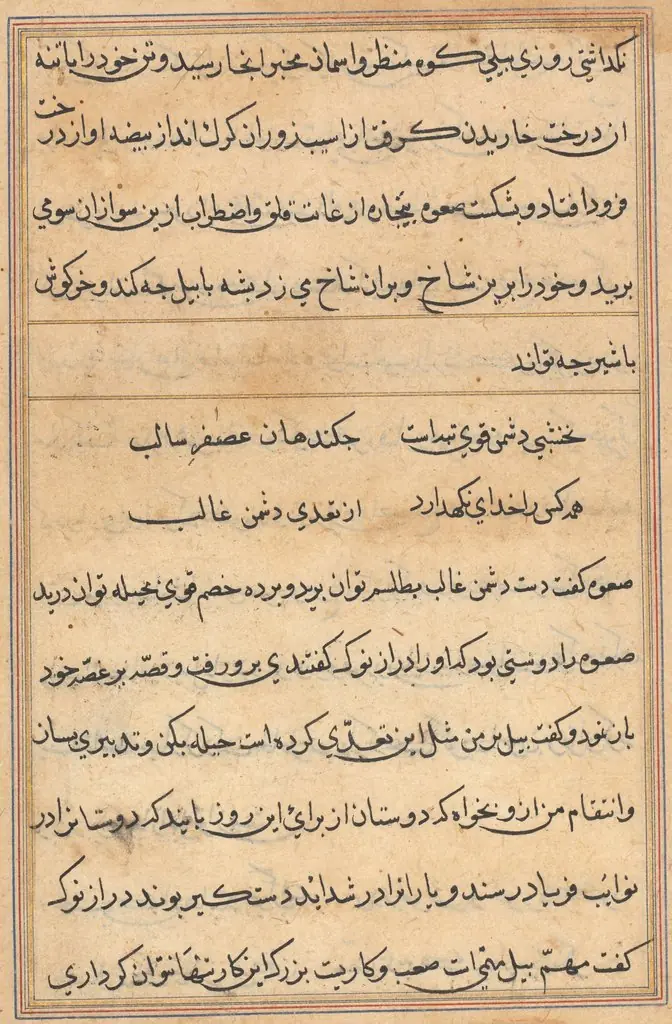 نکداشتی روزی بیلی کوه منظر واسمان مخبر انجا رسید وتن خود را باتنه
ان درخت خاریدن کرفت از اسیب زوران کرك انداز بیضه او از درخت
فرود افتاد و بشکست صعوه بیچاره از غایت قلق واضطراب ازین سو ازان سو می
برید و خود را برین شاخ وبران شاخ می زد بشه با بیل جه کند و خرکوش
با شیر جه تواند
نخشبی دشمن قوی تبداست جکند هان عصفر سالب
همه کس را خدای نکهدارد از تعدی دشمن غالب
صعوه کفت دست دشمن غالب بطلسم توان برید و برده خصم قوی بحیله توان درید
صعوه را دوستی بود که او را دراز نوک کفتندی بر و رفت و قصّه بر غصّه خود
باز نمود و کفت بیل بر من مثل این تعدّی کرده است حیله بکن و تدبیری بسان
وانتقام من ازو بخواه که دوستان از برای این روز بایند که دوستانرا در
نوایب فریاد رسند و یارانرا در شداید دستکیر بوند دراز نوک
کفت مهمّ بیل مهمّی است صعب وکاریت بزرک این کار تنها نتوان کرد اری